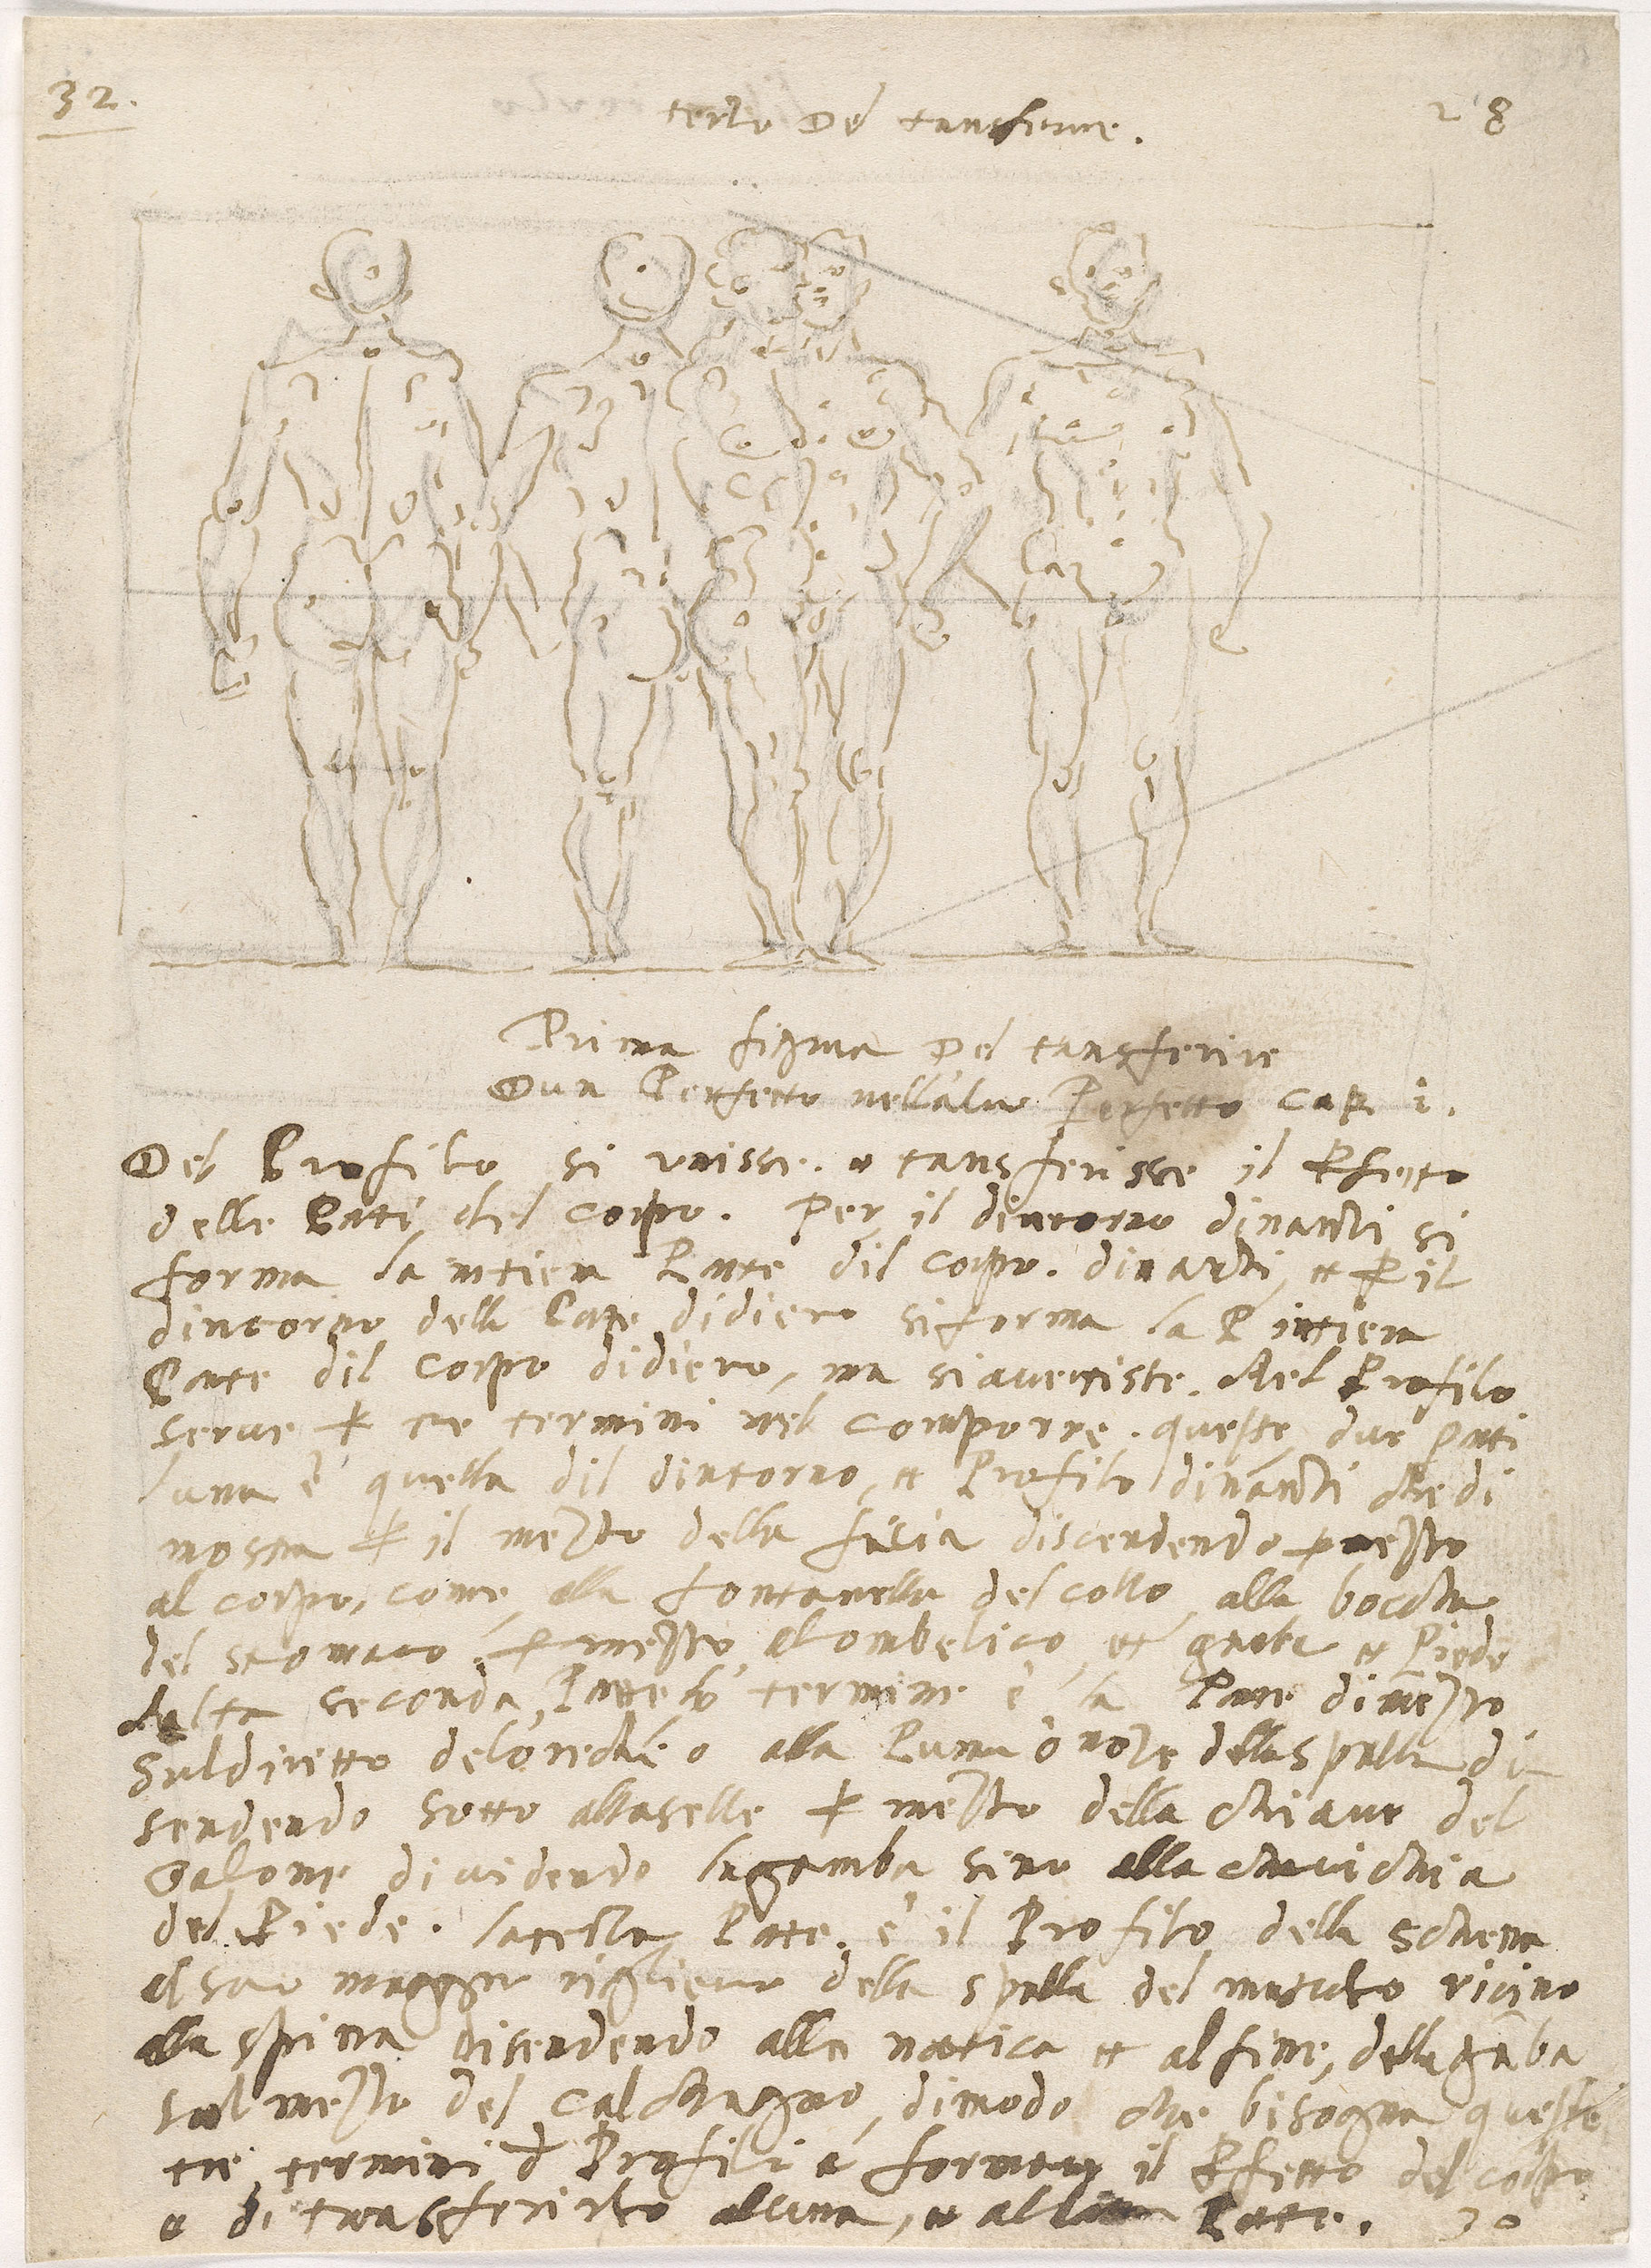 32.
terzo Del transferire.
28
Prima figura Del transferire
D'un Perfetto nell'altro Perfetto Cap. 1.
Del Profilo si unisse. e transferisse il Pfetto
delle Parti del corpo. Per il dintorno dinanti si
forma la intiera Parte dil corpo. dinanti, et P il
dintorno della Parte didiero si forma la intiera
Parte dil corpo didiero, ma si avertiste. chel Profilo
serve P tre termini nel comporre. queste due parti
luna è quella dil dintorno, et Profilo dinanti che di
mostra P il mezzo della discendendo
al corpo, come alla fontanella del collo, alla boccha
del stomaco. P mezzo alombelico, et gamba et Piede
seconda, termine è la Parte di mezzo
Sul diretto delorechie o alla della spalla di
sendendo sotto allaselle P mezzo della chiave del
Galone dividendo lagamba sino alla chavichia
del Piede. laterza Parte. è il Profilo della schena
al suo maggior riglievo della spalla del musculo vicino
alla spina disendendo alla natica et alfine, della gamba
sul mezzo del calchagno, dimodo che bisogna queste
tre termini Profili a formar il Pfetto del corpo
e di trasferirlo alluna, e Parte. 30